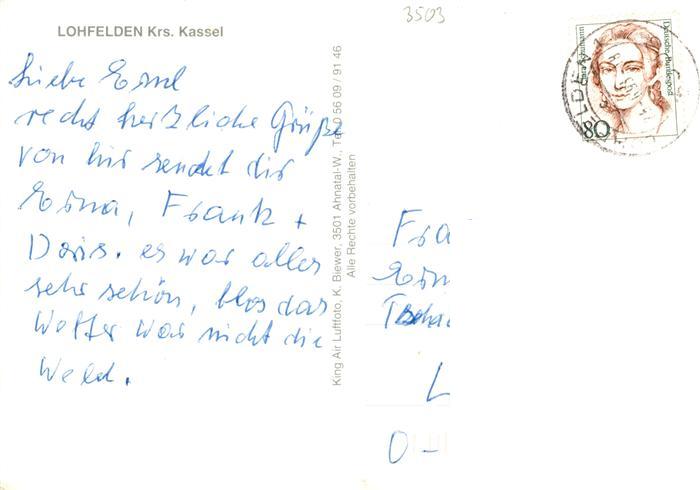 3503
LOHFELDEN Krs. Kassel
Liebe
recht herzliche Grüße
von hir sendet dir
Erna, Frank +
Doris. es war alles
sehr schön, blos das
Wetter war nicht die
Weld.
King Air Luftfoto, K. Biewer, 3501 Ahnatal-W., Tel. 0 56 09 / 91 46
Alle Rechte vorbehalten
Clara Schumann
Deutsche Bundespost
80
Fra
Ern
L
O-